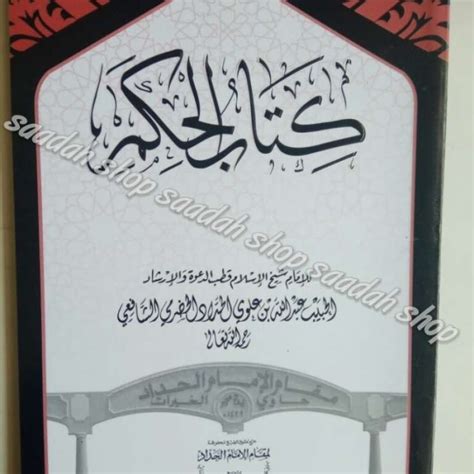 كتاب الحكم
للإمام شيخ الإسلام قطب الدعوة والإرشاد
الحبيب عبد الله بن علوي الحداد الحضرمي الشافعي
رحمه الله تعالى
مقام الإمام الحداد
حاوي الخيرات
لمقام الامام الحداد
saadah shop saadah shop saadah shop